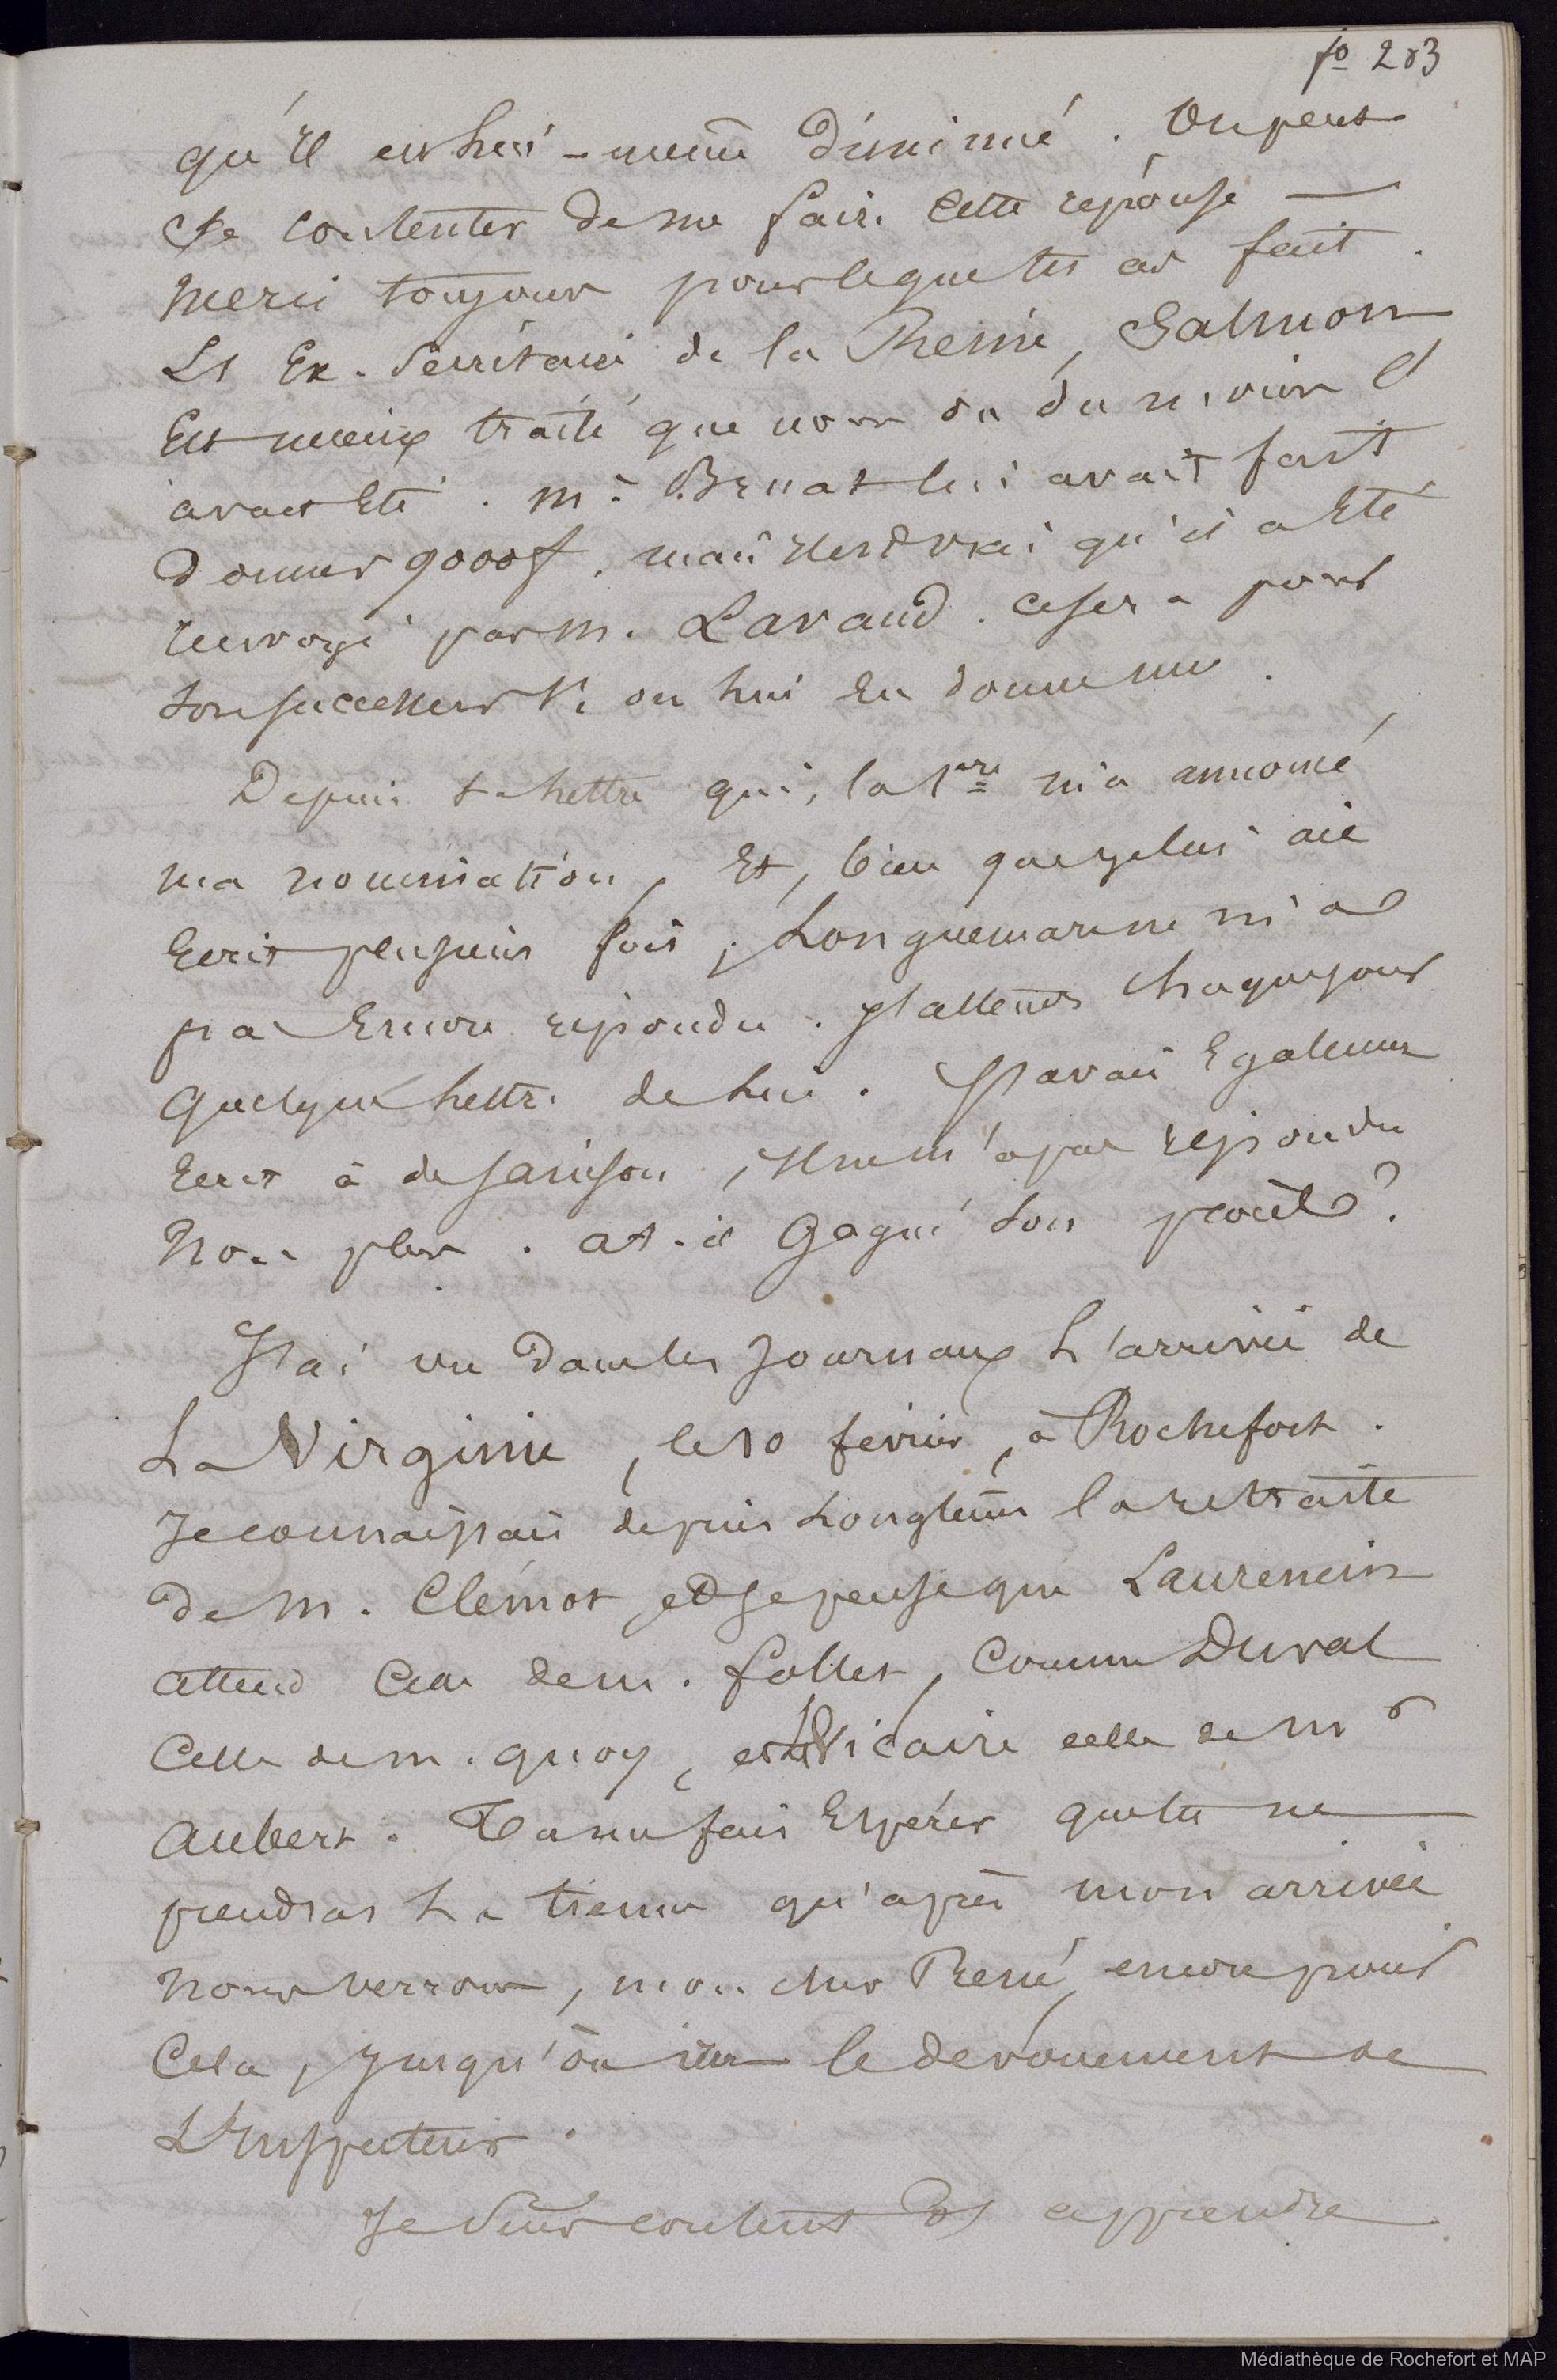 fo 283
qu'il est lui-même diminué. On peut
se contenter de me faire cette réponse —
Merci toujours pour ce que tu as fait.
Et Ex. Secrétaire de la Reine, Salmon
Est mieux traité que nous ou du moins il
avait Eté. Mr Bruat lui avait fait
donner 9000f, mais il est vrai qu'il a Eté
renvoyé par M. Lavaud. Ce sera pour
son successeur si on lui en donne un.
Depuis ta lettre qui, la 1ère m'a annoncé
ma nomination, Et, bien que je lui aie
Ecrit plusieurs fois, Longuemarenne m'a
pas Encore répondu. J'attends chaque jour
quelque lettre de lui. J'avais Egalement
Ecrit à de Saisson, il ne m'a pas répondu
Non plus. At-il gagné son procès?
J'ai vu dans les Journaux L'arrivée de
La Virginie, le 10 février, à Rochefort.
Je connaissais depuis Longtems la retraite
de M. Clémot et Je pense que Laurencin
attend Celle de M. follet, Comme Duval
Celle de M. Quoy, et Le Vicaire celle de Mr
Aubert. Tu me fais Espérer que tu ne
prendras La tienne qu'après mon arrivée
Nous verrons, mon cher René, encore pour
Cela, Jusqu'où ira le dévouement de
L'Inspecteur.
Je Suis content d'apprendre
Médiathèque de Rochefort et MAP